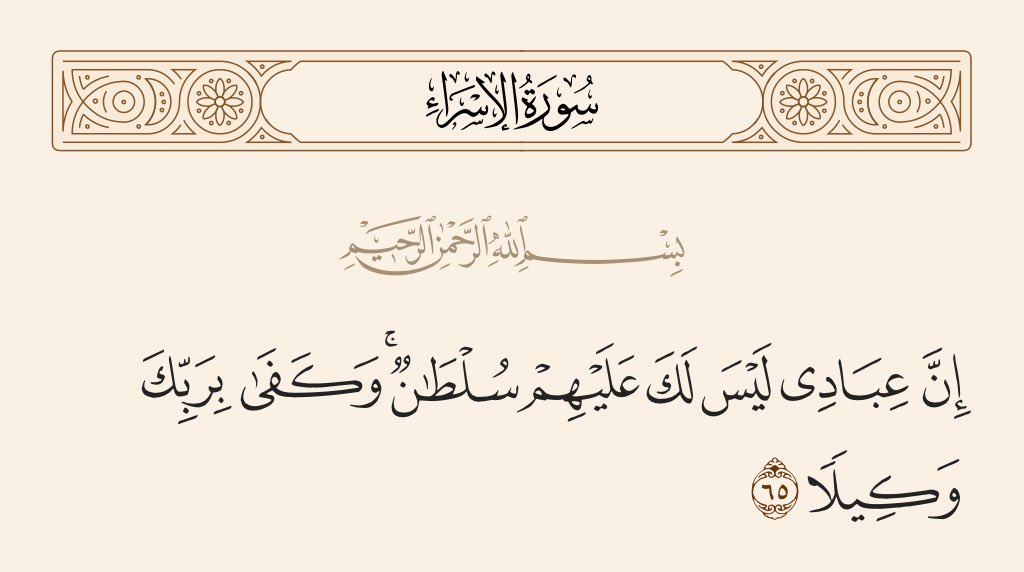 سُورَةُ الإِسْرَاءِ
بِسْمِ ٱللَّهِ ٱلرَّحْمَٰنِ ٱلرَّحِيمِ
إِنَّ عِبَادِى لَيْسَ لَكَ عَلَيْهِمْ سُلْطَـٰنٌ ۚ وَكَفَىٰ بِرَبِّكَ
وَكِيلًا ٦٥